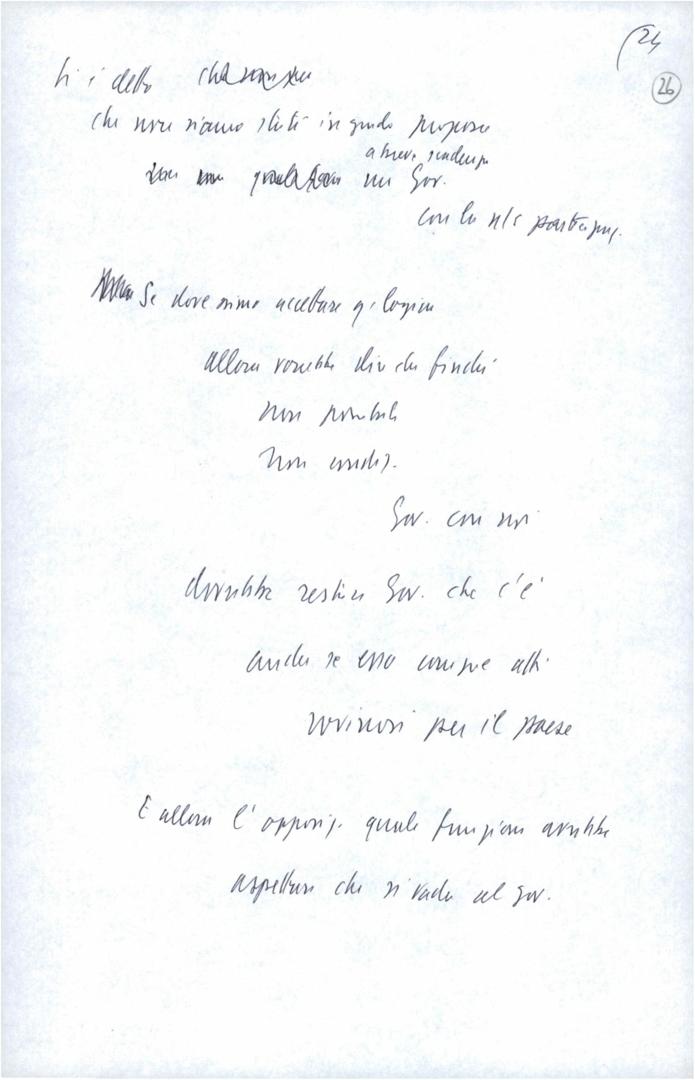 24
26
Si è detto
che non siamo stati in grado proporre
a breve scadenza
un Gov.
con la n/s partecipaz.
Se dovessimo accettare q. logica
allora vorrebbe dire che finché
non possibile
non condiz.
Gov. con noi
dovrebbe restare Gov. che c'è
anche se esso compie atti
rovinosi per il paese
E allora l'opposiz. quale funzione avrebbe
aspettare che si vada al gov.